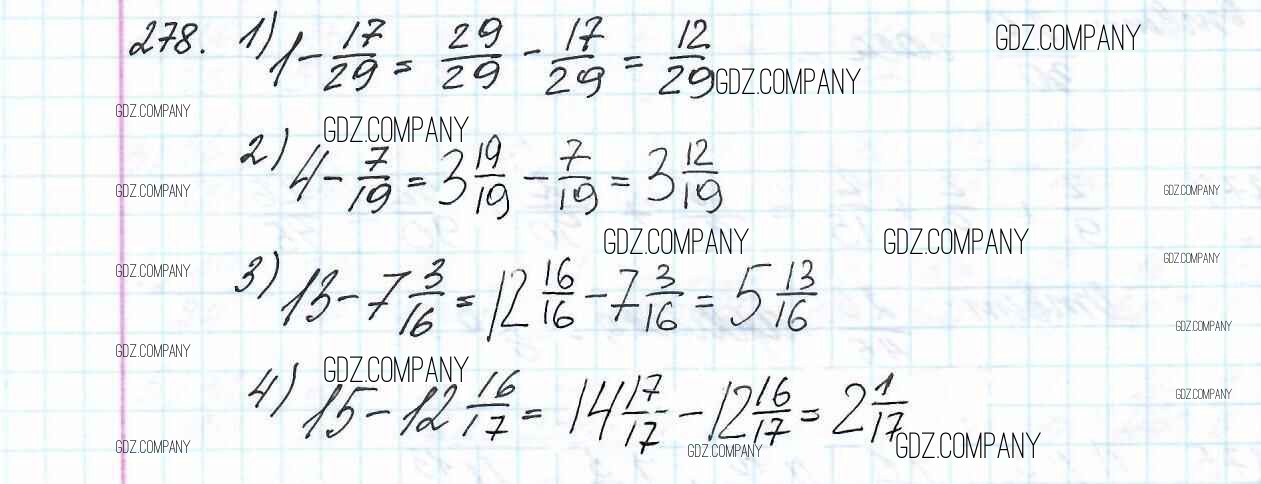 278. 1) 1 - 17/29 = 29/29 - 17/29 = 12/29
GDZ.COMPANY
GDZ.COMPANY
GDZ.COMPANY
GDZ.COMPANY
2) 4 - 7/19 = 3 19/19 - 7/19 = 3 12/19
GDZ.COMPANY
GDZ.COMPANY
GDZ.COMPANY
GDZ.COMPANY
3) 13 - 7 3/16 = 12 16/16 - 7 3/16 = 5 13/16
GDZ.COMPANY
GDZ.COMPANY
GDZ.COMPANY
GDZ.COMPANY
GDZ.COMPANY
4) 15 - 12 16/17 = 14 17/17 - 12 16/17 = 2 1/17
GDZ.COMPANY
GDZ.COMPANY
GDZ.COMPANY
GDZ.COMPANY